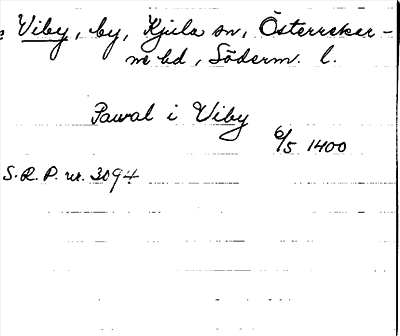 Viby, by, Kjula sn, Österreker-
ne hd, Söderm. l.
Pawal i Viby
6/5 1400
S.R.P. nr. 3094